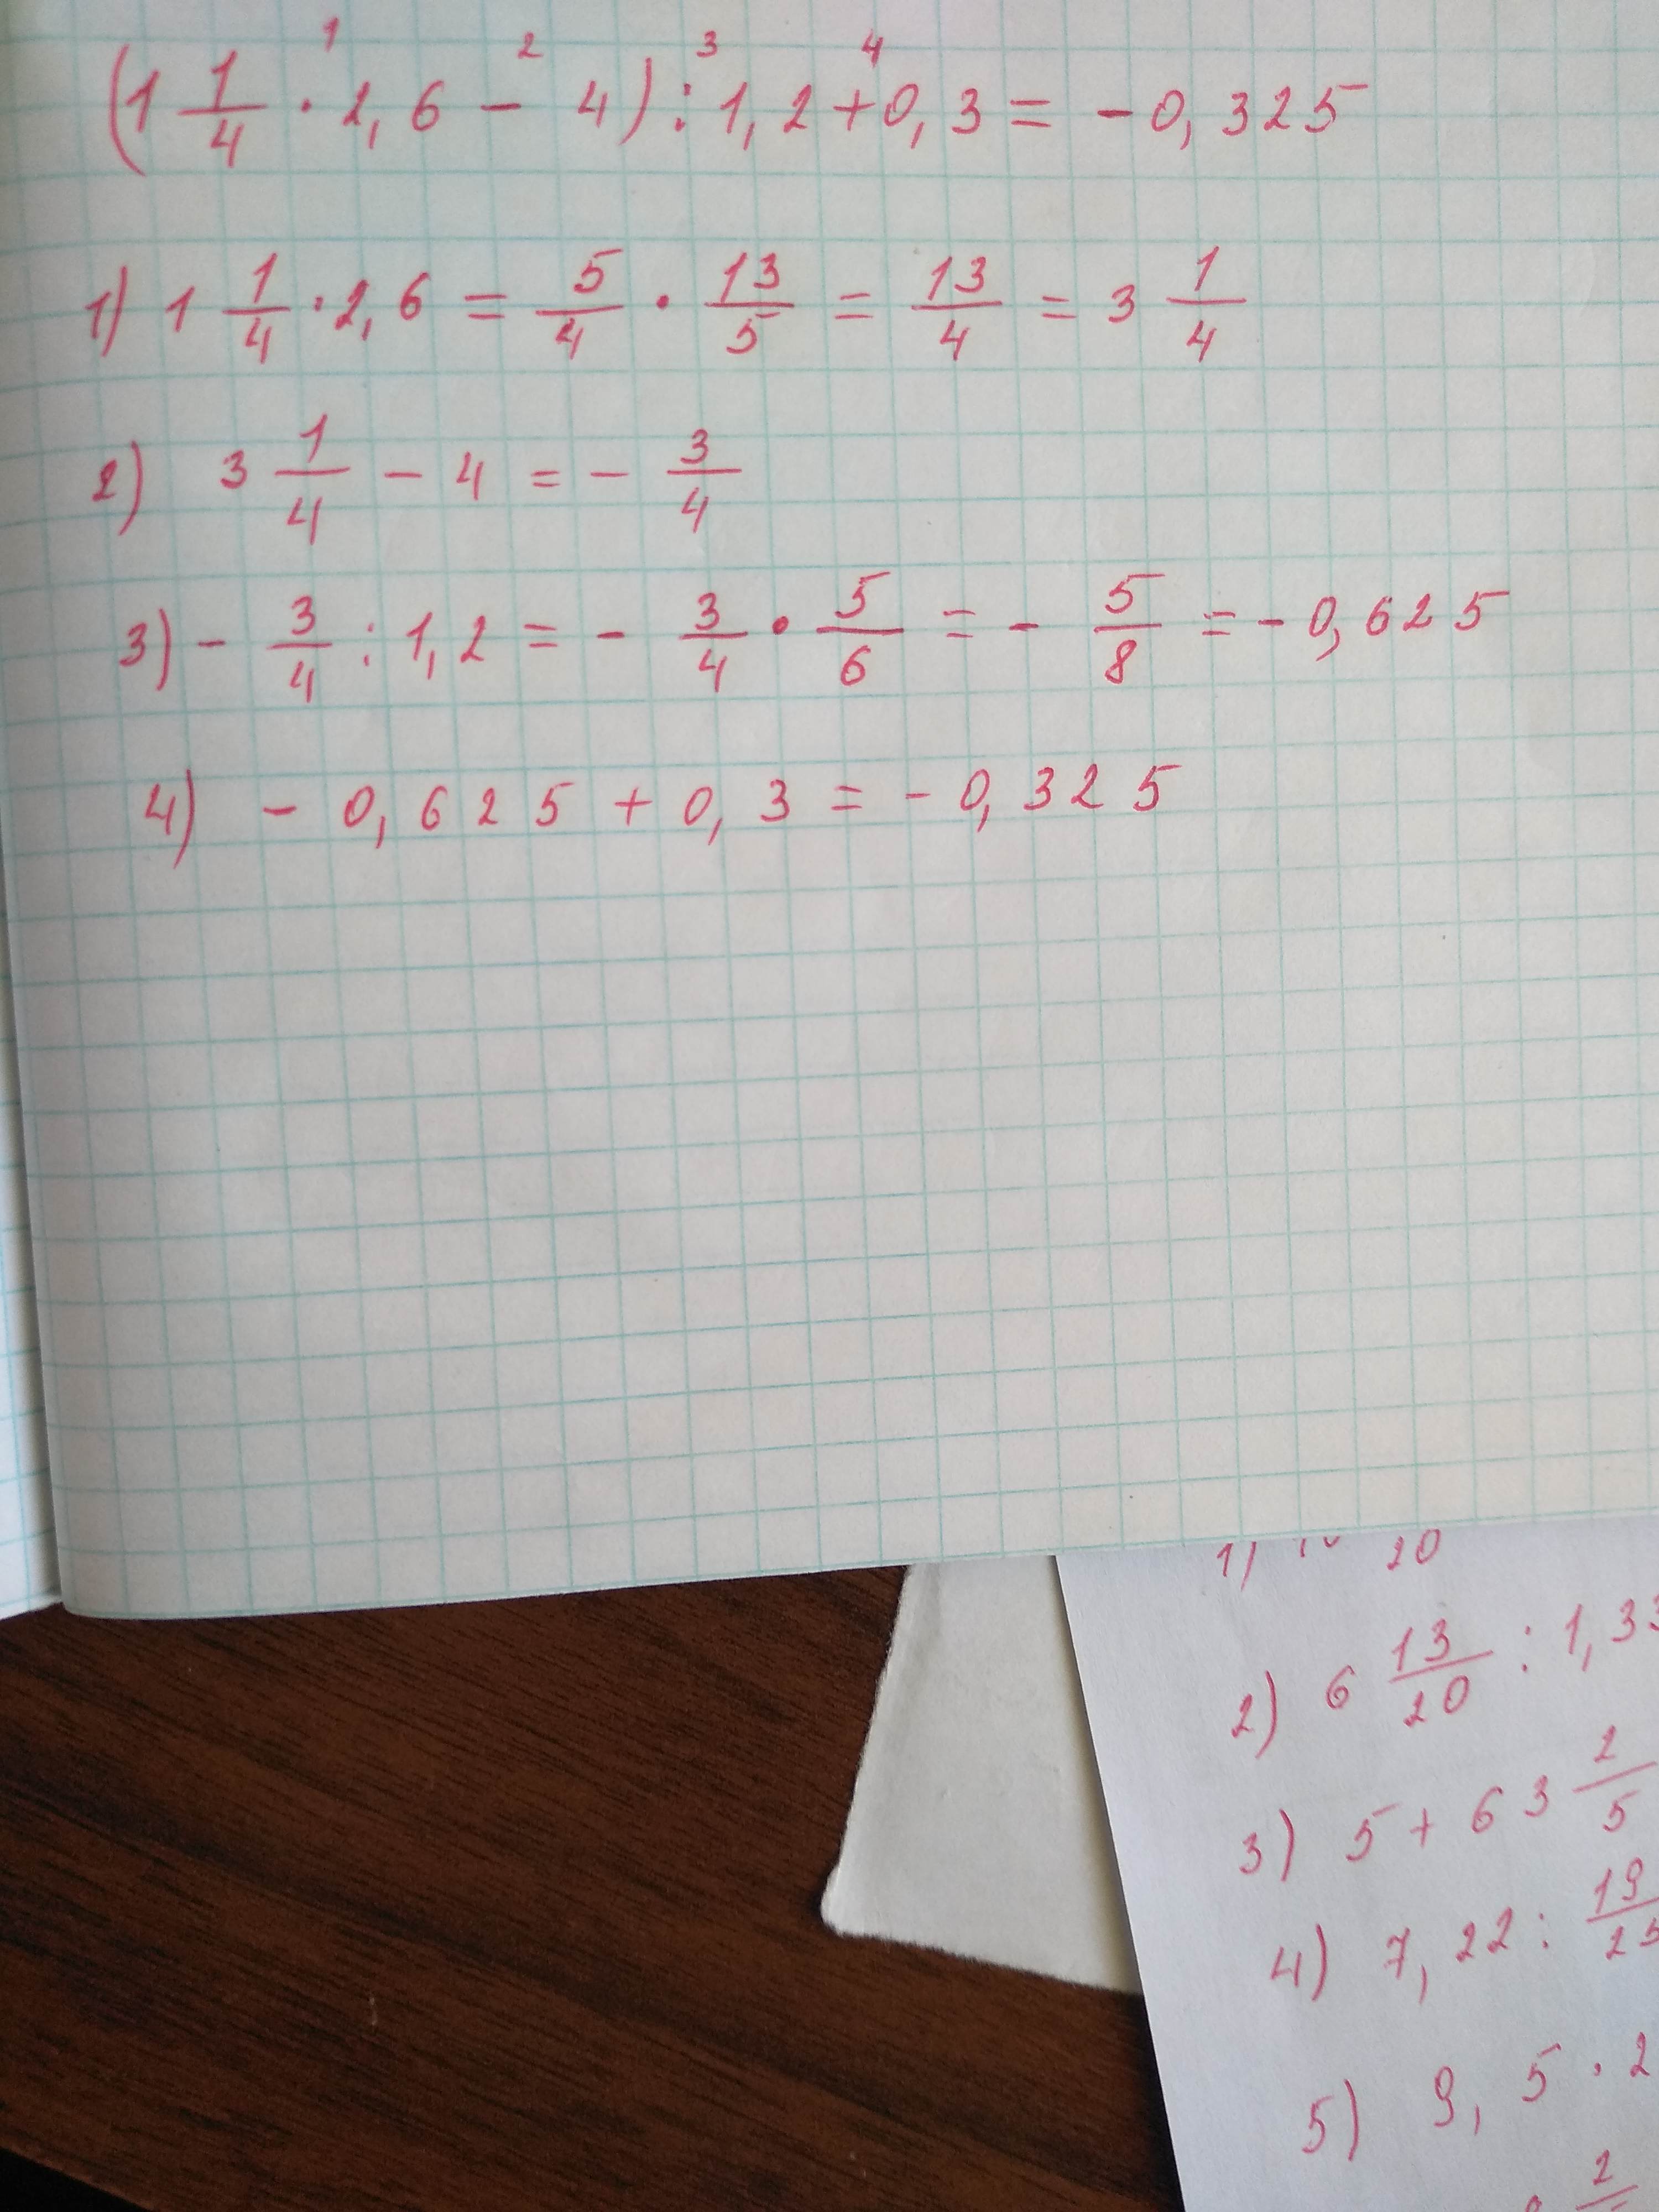 1 2 3 4
(1 1/4 · 2,6 - 4) : 1,2 + 0,3 = - 0,325
1) 1 1/4 · 2,6 = 5/4 · 13/5 = 13/4 = 3 1/4
2) 3 1/4 - 4 = - 3/4
3) - 3/4 : 1,2 = - 3/4 · 5/6 = - 5/8 = - 0,625
4) - 0,625 + 0,3 = - 0,325
1) 20
2) 6 13/20 : 1,33
3) 5 + 63 2/5
4) 7,22 : 19/25
5) 9,5 · 2
2